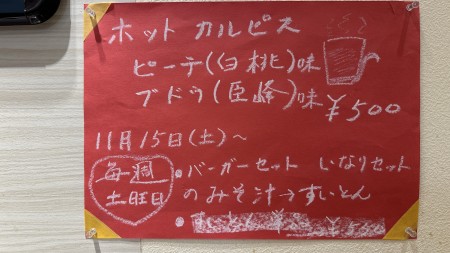 ホット カルピス
ピーチ(白桃)味
ブドウ(臣峰)味 ¥500
11月15日(土)～
毎週
土旺日
・バーガーセット いなりセット
のみそ汁→すいとん